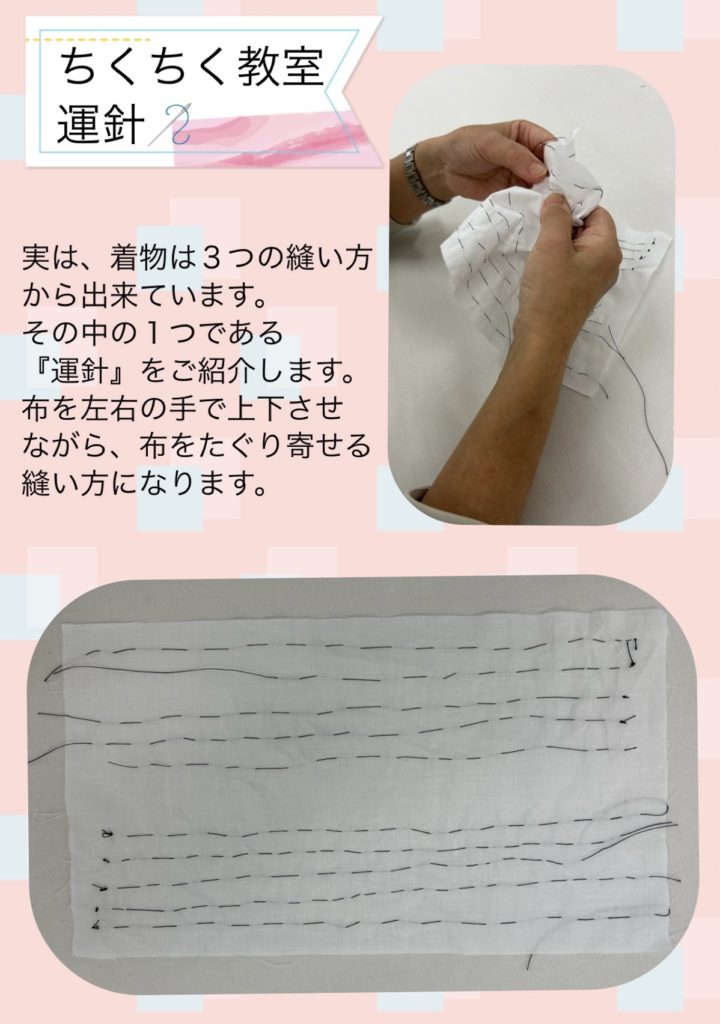 ちくちく教室
運針
実は、着物は３つの縫い方
から出来ています。
その中の１つである
『運針』をご紹介します。
布を左右の手で上下させ
ながら、布をたぐり寄せる
縫い方になります。